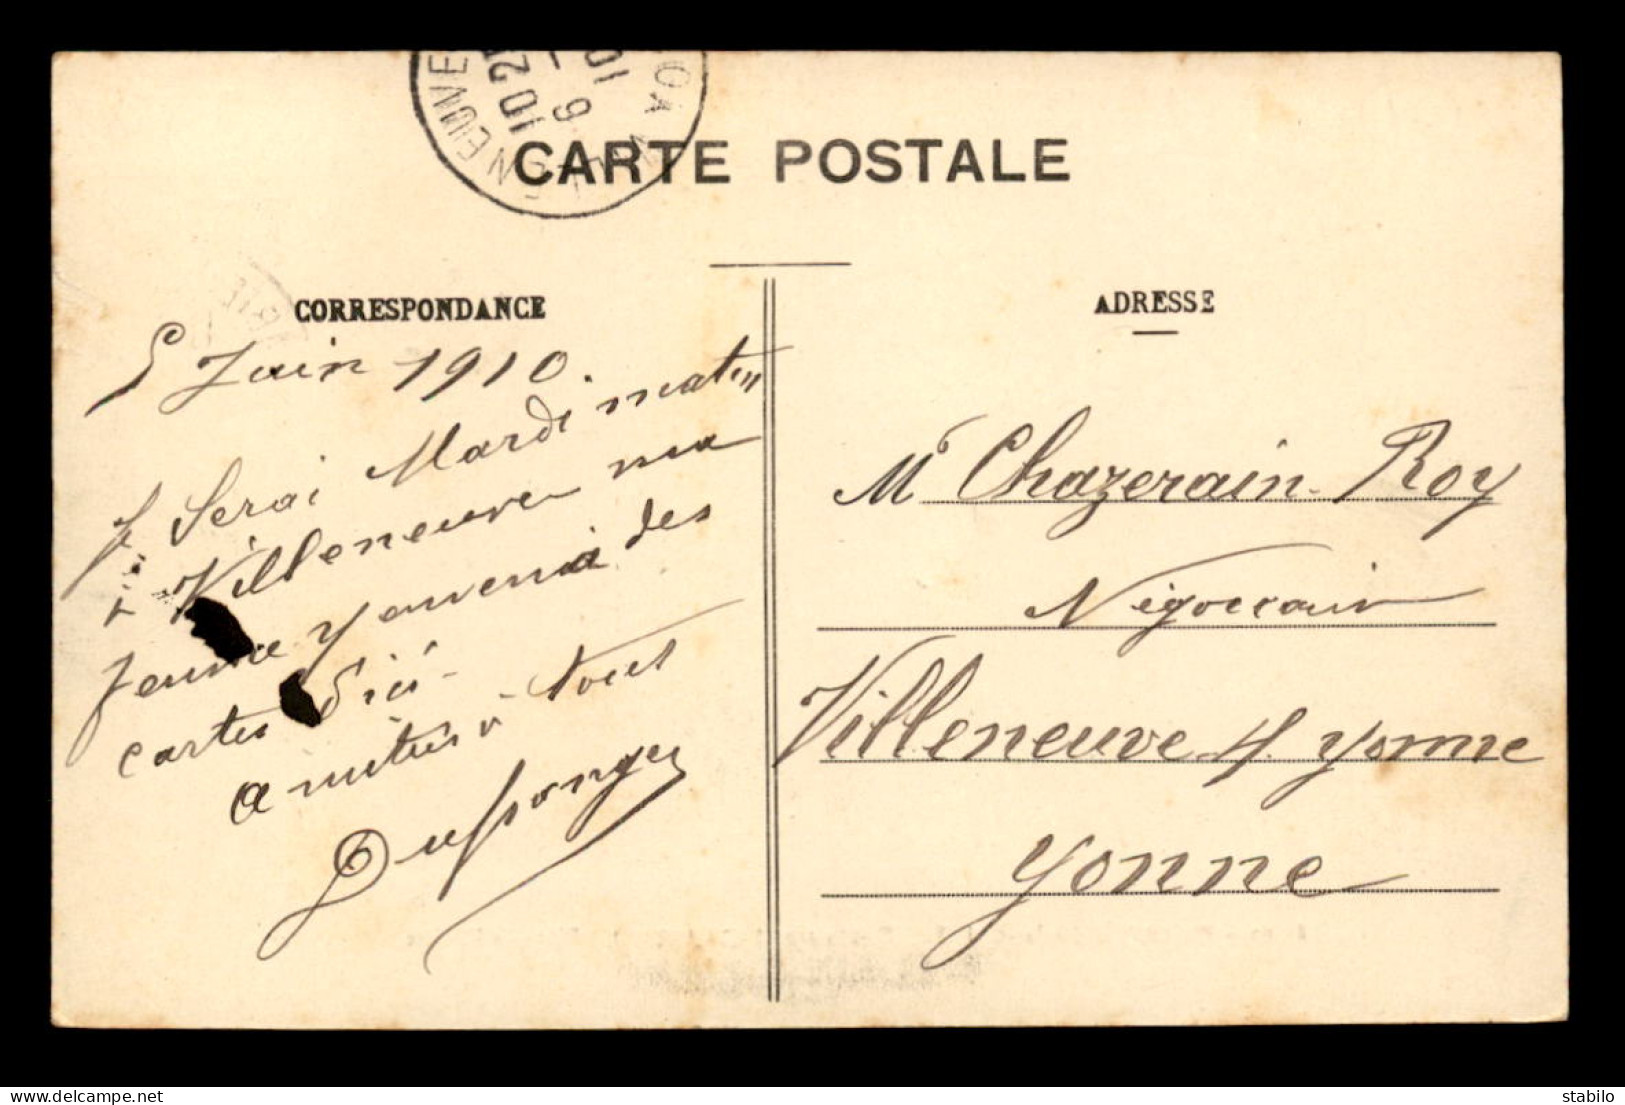 NEUVE
10 2
6
10
CARTE POSTALE
CORRESPONDANCE
5 Juin 1910.
Je Serai Mardi matin
à Villeneuve ma
des
cartes d'ici -
amitiés à tous
ADRESSE
Mr Chazerain-Roy
Négociant
Villeneuve s/ Yonne
Yonne
delcampe.net
stabilo